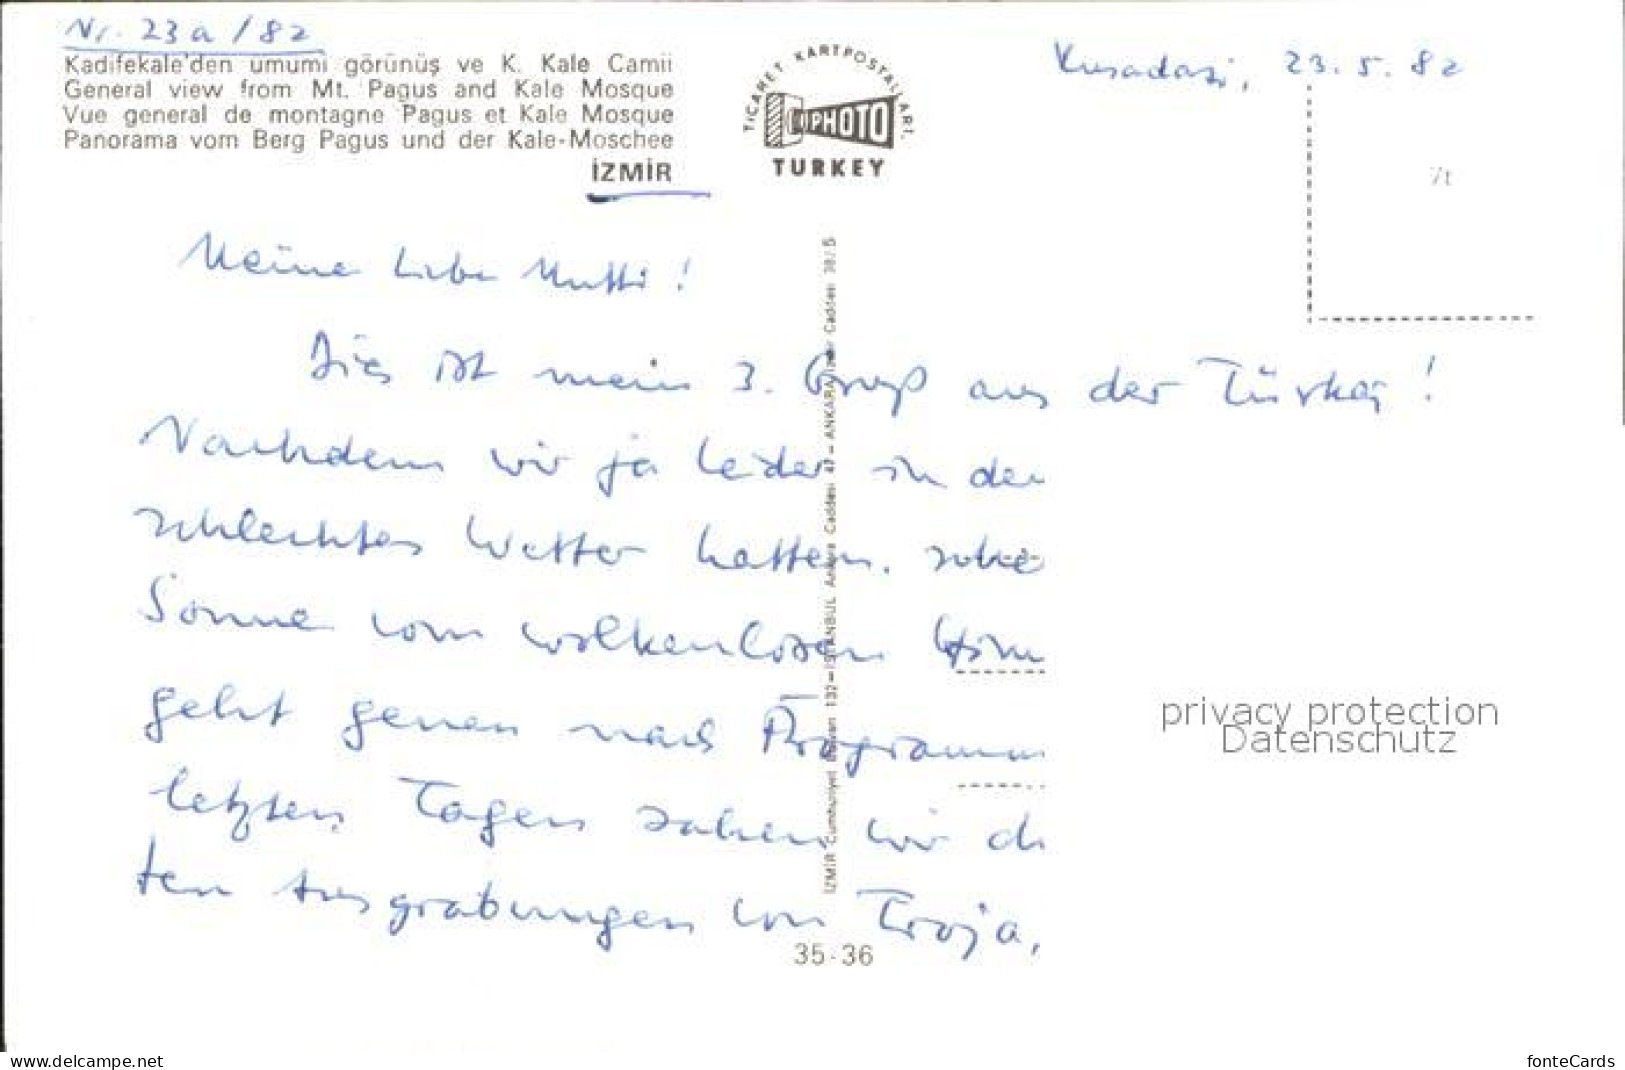 Nr. 23a/82
Kadifekale'den umumi görünüş ve K. Kale Camii
General view from Mt. Pagus and Kale Mosque
Vue general de montagne Pagus et Kale Mosque
Panorama vom Berg Pagus und der Kale-Moschee
İZMİR
TİCARET KARTPOSTALLARI.
PHOTO
TURKEY
Kusadasi, 23.5.82
7t
Meine liebe Mutti!
Dies ist mein 3. Gruß aus der Türkei!
Nachdem wir ja leider in den
schlechtes Wetter hatten.
Sonne vom wolkenlosen Him
geht genau nach Programm
letzten Tagen sahen wir di
ten Ausgrabungen von Troja,
İZMİR Cumhuriyet Bulvarı 132-İSTANBUL Ankara Caddesi 47-ANKARA İzmir Caddesi 38/5
35-36
privacy protection
Datenschutz
www.delcampe.net
fonteCards